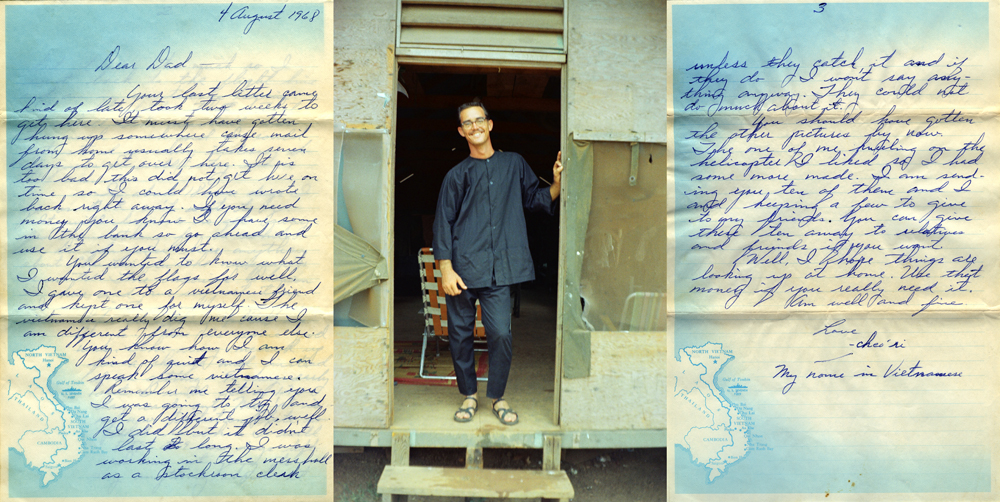 4 August 1968
Dear Dad —
Your last letter came
kind of late, took two weeks to
get here. It must have gotten
hung up somewhere cause mail
from home usually takes seven
days to get over here. It is
to bad this did not get here on
time so I could have wrote
back right away. If you need
money you know I have some
in the bank so go ahead and
use it if you must.
You wanted to know what
I wanted the flags for well
I gave one to a vietnamese friend
and kept one for myself. The
vietnamese really dig me cause I
am different from everyone else.
You know how I am
kind of quiet and I can
speak some vietnamese.
Remember me telling you
I was going to try and
get a different job well
I did but it didn't
last to long. I was
working in the mess hall
as a stockroom clerk
NORTH VIETNAM
Hanoi
Gulf of Tonkin
THAILAND
SOUTH
VIETNAM
CAMBODIA
3
unless they catch it and if
they do I won't say any-
thing anyway. They could not
do much about it.
You should have gotten
the other pictures by now.
The one of me puting on the
helicopter I liked so I had
some more made. I am send-
ing you ten of them and I
and keeping a few to give
to my friends. You can give
these ten away to relatives
and friends if you want
Well. I hope things are
looking up at home. Use that
money if you really need it.
I am well and fine
Love
-chei'ri
My name in Vietnamese
NORTH VIETNAM
Hanoi
Gulf of Tonkin
THAILAND
SOUTH
VIETNAM
CAMBODIA